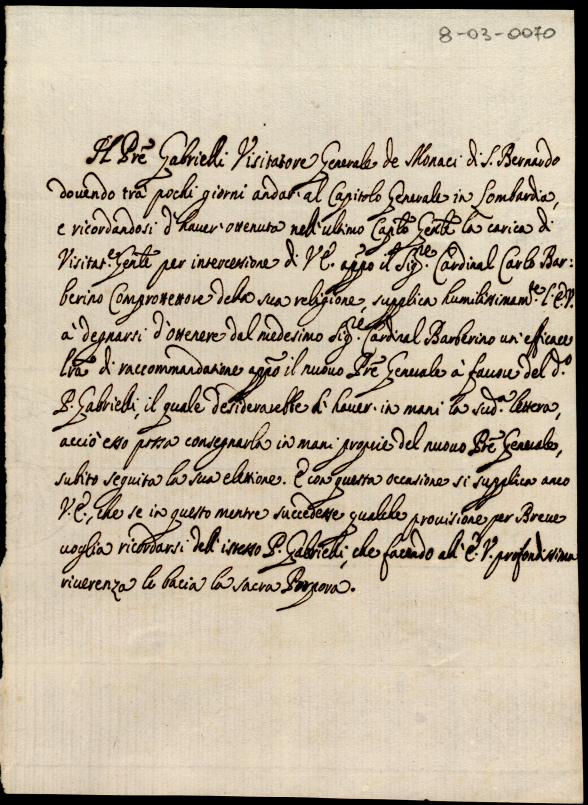 8-03-0070
Il Prē Gabrielli Visitatore Generale de Monaci di S. Bernardo
dovendo trà pochi giorni andar' al Capitolo Generale in Lombardia,
e ricordandosi d'hauer' ottenuta nell'ultimo Caplō Genle la carica di
Visitat.e Genle per intercessione di V.E. appō il Sig.re Cardinal Carlo Bar:
berino Comprottettore della sua religione, supplica humilissimam.te l'E.V.
à degnarsi d'ottenere dal medesimo Sig.re Cardinal Barberino un'efficace
lrā di raccommandatione appō il nuouo Prē Generale à fauore del d.o
P. Gabrielli, il quale desiderarebbe di hauer' in mani la sud.a lettera,
acciò esso possa consegnarla in mani proprie del nuouo Prē Generale,
subito seguita la sua elettione. E con questa occasione si supplica anco
V.E., che se in questo mentre succedesse qualche prouisione per Breue
uoglia ricordarsi dell'istesso P. Gabrielli, che facendo all'E.V. profondissima
riuerenza le bacia la sacra Porpora.